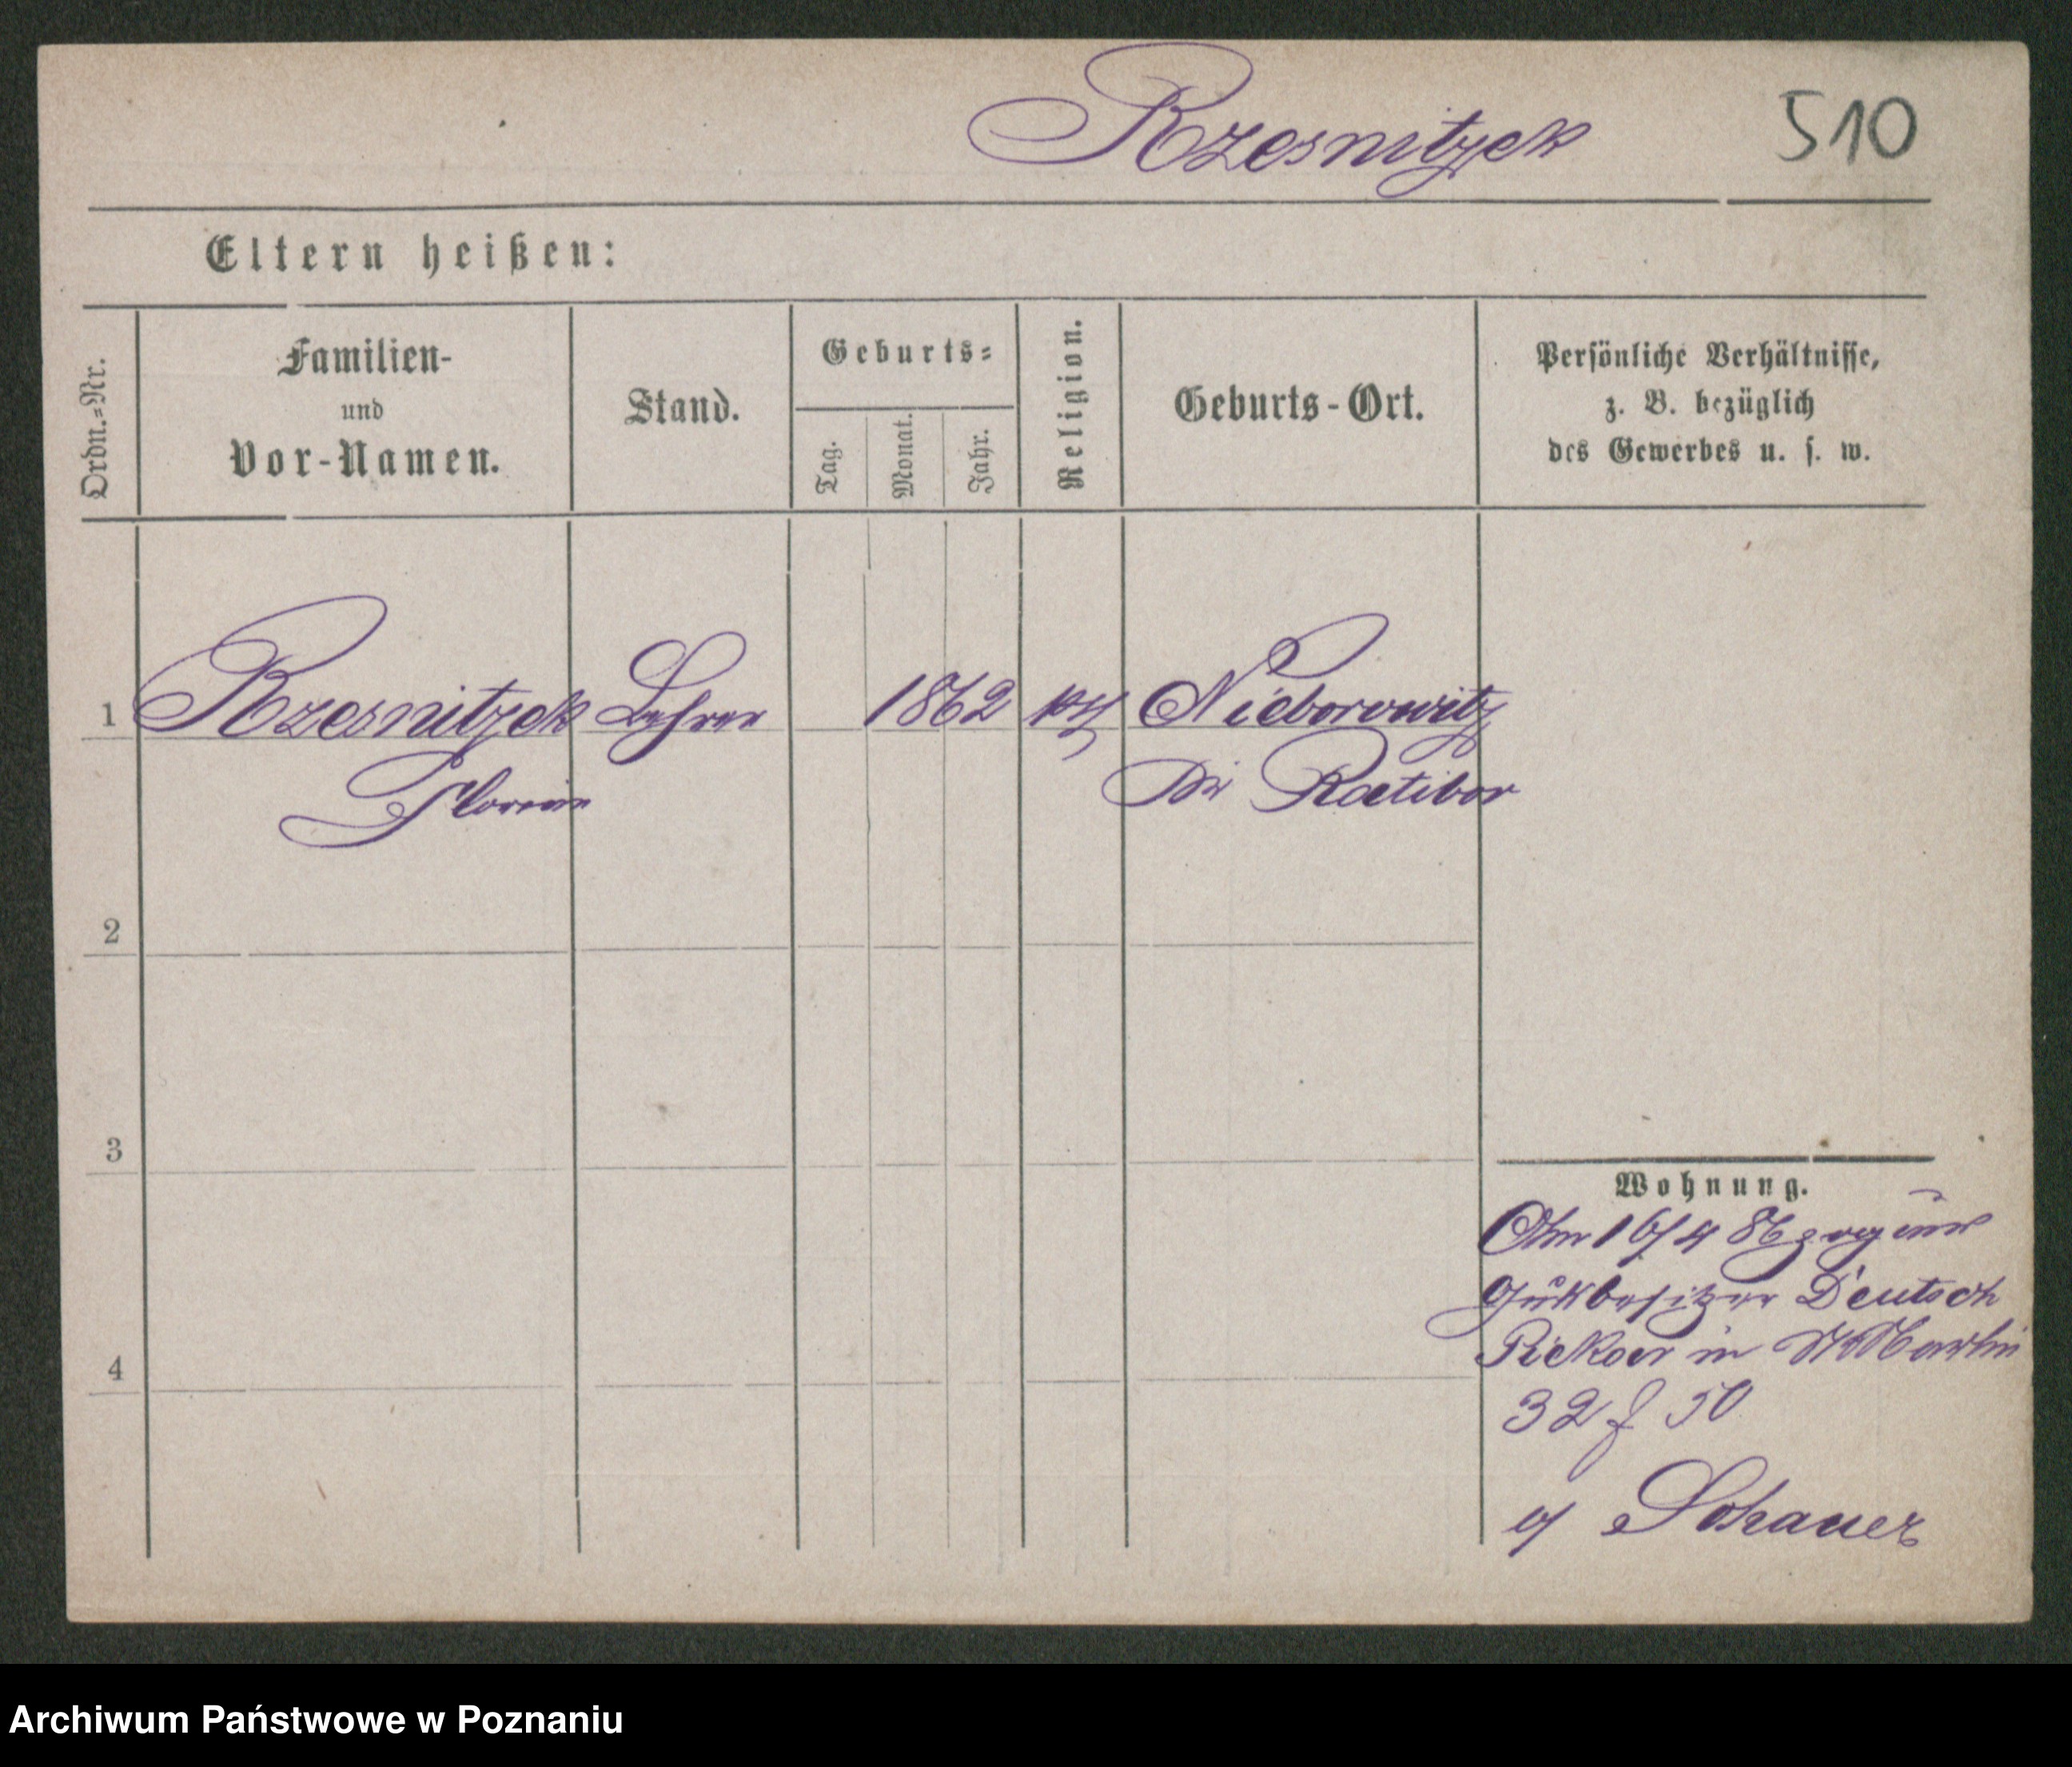 Rzesnitzek 510
Eltern heißen:
Ordn.=Nr.
Familien-
und
Vor-Namen.
Stand.
Geburts=
Tag.
Monat.
Jahr.
Religion.
Geburts-Ort.
Persönliche Verhältnisse,
z. B. bezüglich
des Gewerbes u. s. w.
1 Rzesnitzek Lehrer 1862 kth Nieborowitz
Florian Ratibor
2
3
4
Wohnung.
Am 16/4 86 zog
Deutsch
in St Martin
32 f 50
Schauer
Archiwum Państwowe w Poznaniu